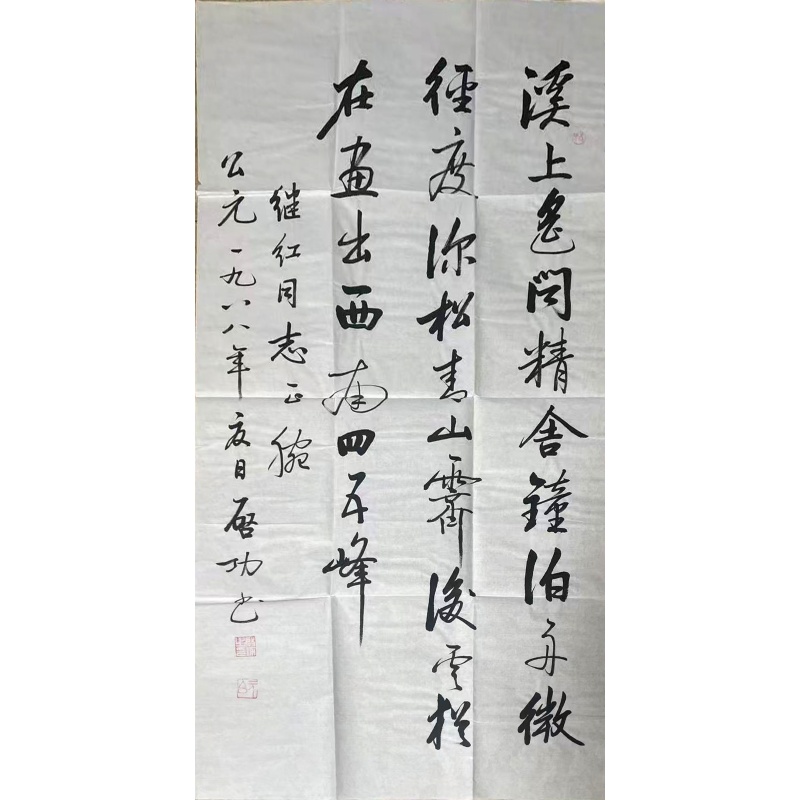 溪上遙聞精舍鐘泊舟微
徑度深松青山霽後雲猶
在畫出西南四五峰
继红同志正腕
公元一九八八年夏日启功书